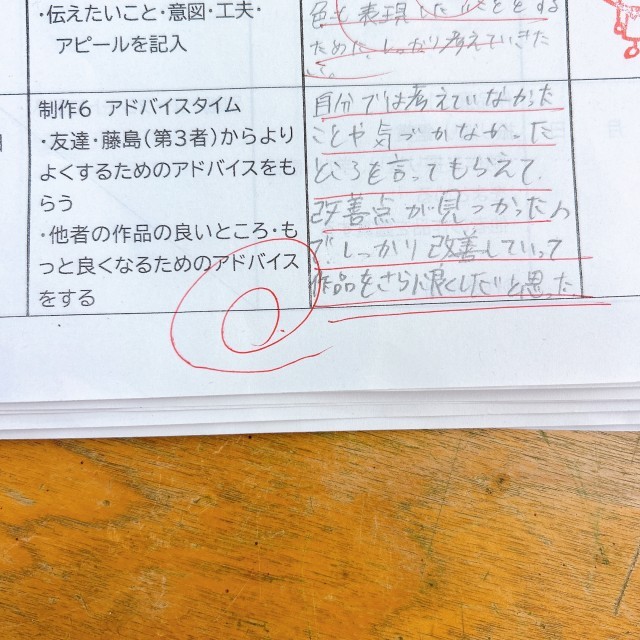 ・伝えたいこと・意図・工夫・
アピールを記入
色も表現
ためにしっかり考えていきた
い。
制作6 アドバイスタイム
・友達・藤島(第3者)からより
よくするためのアドバイスをも
らう
・他者の作品の良いところ・も
っと良くなるためのアドバイス
をする
自分では考えていなかった
ことや気づかなかった
ところを言ってもらえて、
改善点が見つかったん
で、しっかり改善していって
作品をさらに良くしたいと思った